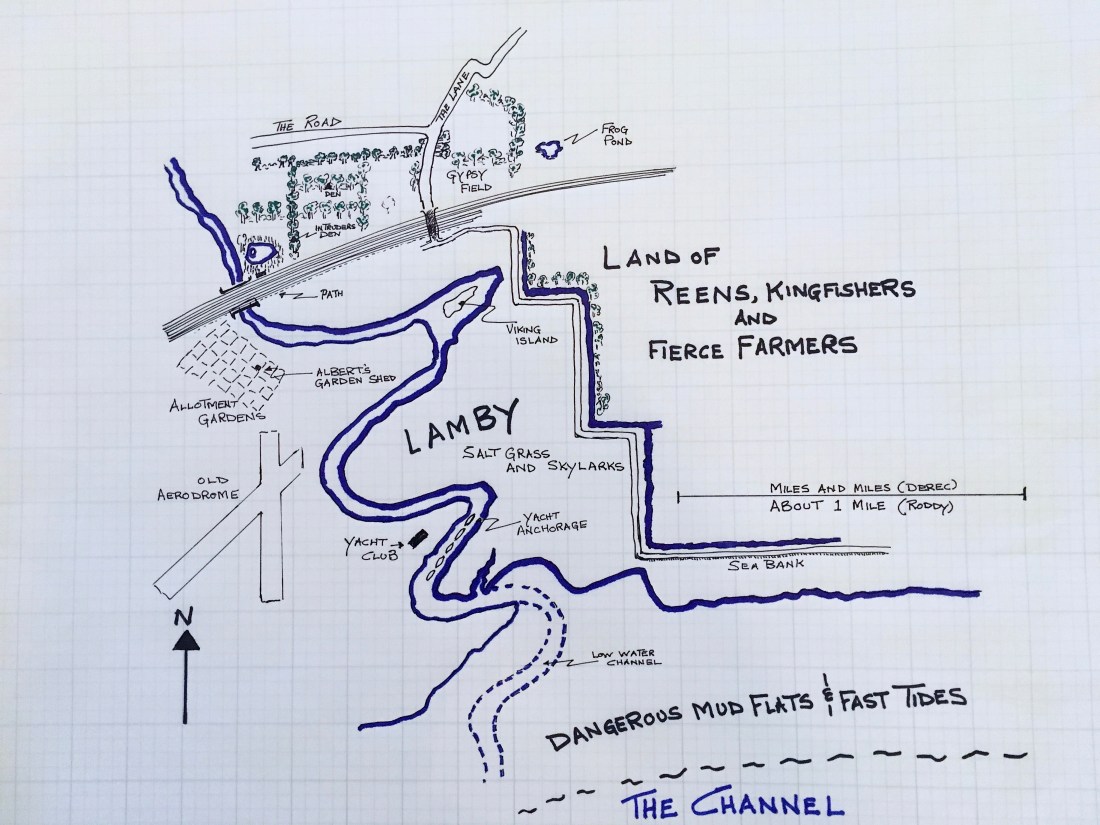 THE LANE
THE ROAD
FROG
POND
GYPSY
FIELD
DEN
INTRUDERS
DEN
LAND OF
REENS, KINGFISHERS
AND
FIERCE FARMERS
PATH
VIKING
ISLAND
ALBERT'S
GARDEN SHED
ALLOTMENT
GARDENS
LAMBY
SALT GRASS
AND SKYLARKS
OLD
AERODROME
MILES AND MILES (DEREC)
ABOUT 1 MILE (RODDY)
YACHT
ANCHORAGE
YACHT
CLUB
SEA BANK
N
LOW WATER
CHANNEL
DANGEROUS MUD FLATS & FAST TIDES
THE CHANNEL